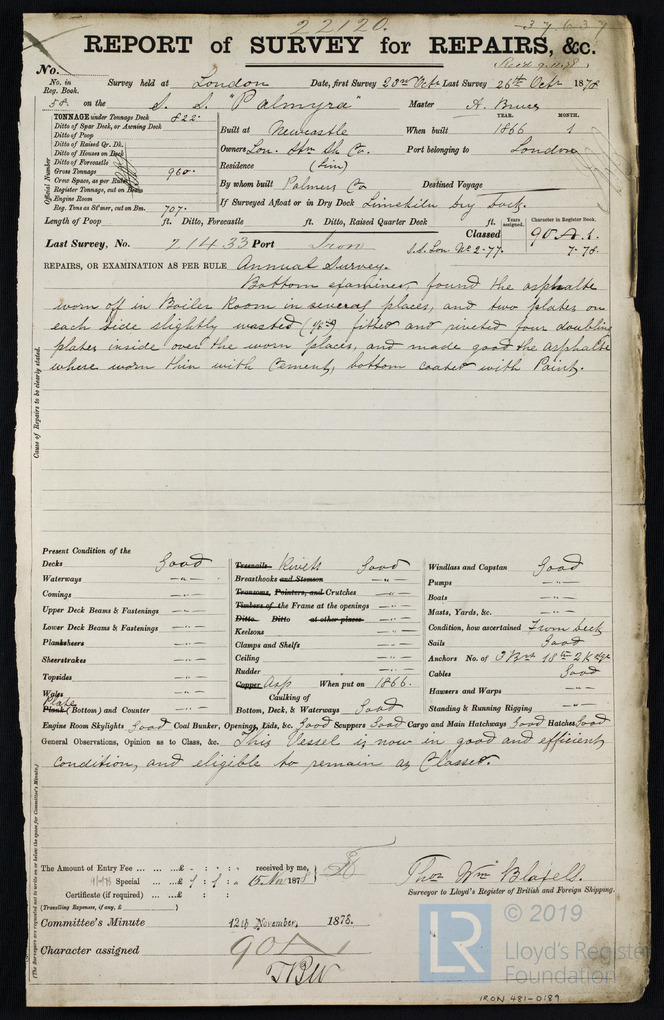 22120.
37637
REPORT of SURVEY for REPAIRS, &c.
No.
No. in Reg. Book.
Survey held at London Date, first Survey 20th Octr Last Survey 26th Octr 1878
58 on the S. S. "Palmyra" Master A. Bruce
TONNAGE under Tonnage Deck 822
Ditto of Spar Deck, or Awning Deck
Ditto of Poop
Ditto of Raised Qr. Dk.
Ditto of Houses on Deck
Ditto of Forecastle
Gross Tonnage 960
Crew Space, as per Rule
Register Tonnage, cut on Beam
Engine Room
Reg. Tons as St'mer, cut on Bm. 707
Official Number
YEAR. MONTH.
Built at Newcastle When built 1866 1
Owners Lon. Stm Sh Co. Port belonging to London
Residence (Lim)
By whom built Palmers Co Destined Voyage
If Surveyed Afloat or in Dry Dock Limekiln Dry Dock.
Length of Poop ft. Ditto, Forecastle ft. Ditto, Raised Quarter Deck ft.
Years assigned. Character in Register Book.
Last Survey, No. 21433 Port Iron Classed 90 A.1.
S.S. Lon No 2-77. 7-78.
REPAIRS, OR EXAMINATION AS PER RULE Annual Survey.
Bottom examined, found the asphalte
worn off in Boiler Room in several places, and two plates on
each side slightly wasted fitted and riveted four doubling
plates inside over the worn places, and made good the asphalte
where worn thin with Cement, bottom coated with Paint.
Cause of Repairs to be clearly stated.
Present Condition of the
Decks Good
Waterways -"-
Comings -"-
Upper Deck Beams & Fastenings -"-
Lower Deck Beams & Fastenings -"-
Planksheers
Sheerstrakes -"-
Topsides -"-
Wales -"-
Plate
Plank (Bottom) and Counter -"-
Treenails Rivets Good
Breasthooks and Stemson -"-
Transoms, Pointers, and Crutches -"-
Timbers of the Frame at the openings -"-
Ditto Ditto at other places
Keelsons -"-
Clamps and Shelfs -"-
Ceiling -"-
Rudder -"-
Copper Asp When put on 1866.
Caulking of
Bottom, Deck, & Waterways Good
Windlass and Capstan Good
Pumps -"-
Boats -"-
Masts, Yards, &c. -"-
Condition, how ascertained From deck
Sails Good
Anchors No. of 3 Br 1 St 2 Kedge
Cables Good
Hawsers and Warps -"-
Standing & Running Rigging -"-
Engine Room Skylights Good Coal Bunker, Openings, Lids, &c. Good Scuppers Good Cargo and Main Hatchways Good Hatches Good
General Observations, Opinion as to Class, &c. This Vessel is now in good and efficient
condition, and eligible to remain as Classed.
The Amount of Entry Fee ... ...£ - : : received by me,
Special ... ...£ 1 : 1 : Nov 187
Certificate (if required) ... ...£ : :
(Travelling Expenses, if any, £ )
Thos Wm Blabell.
Surveyor to Lloyd's Register of British and Foreign Shipping.
Committee's Minute 12th November, 1878.
Character assigned 90A
(The Surveyors are requested not to write on or below the space for Committee's Minute.)
LR © 2019
Lloyd's Register
Foundation
IRON 481-0189